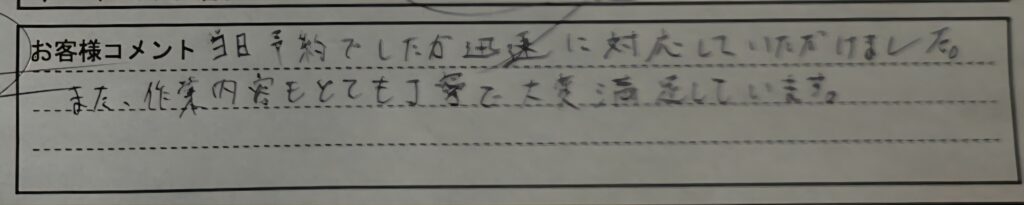 お客様コメント 当日予約でしたが迅速に対応していただけました。
また、作業内容もとても丁寧で大変満足しています。